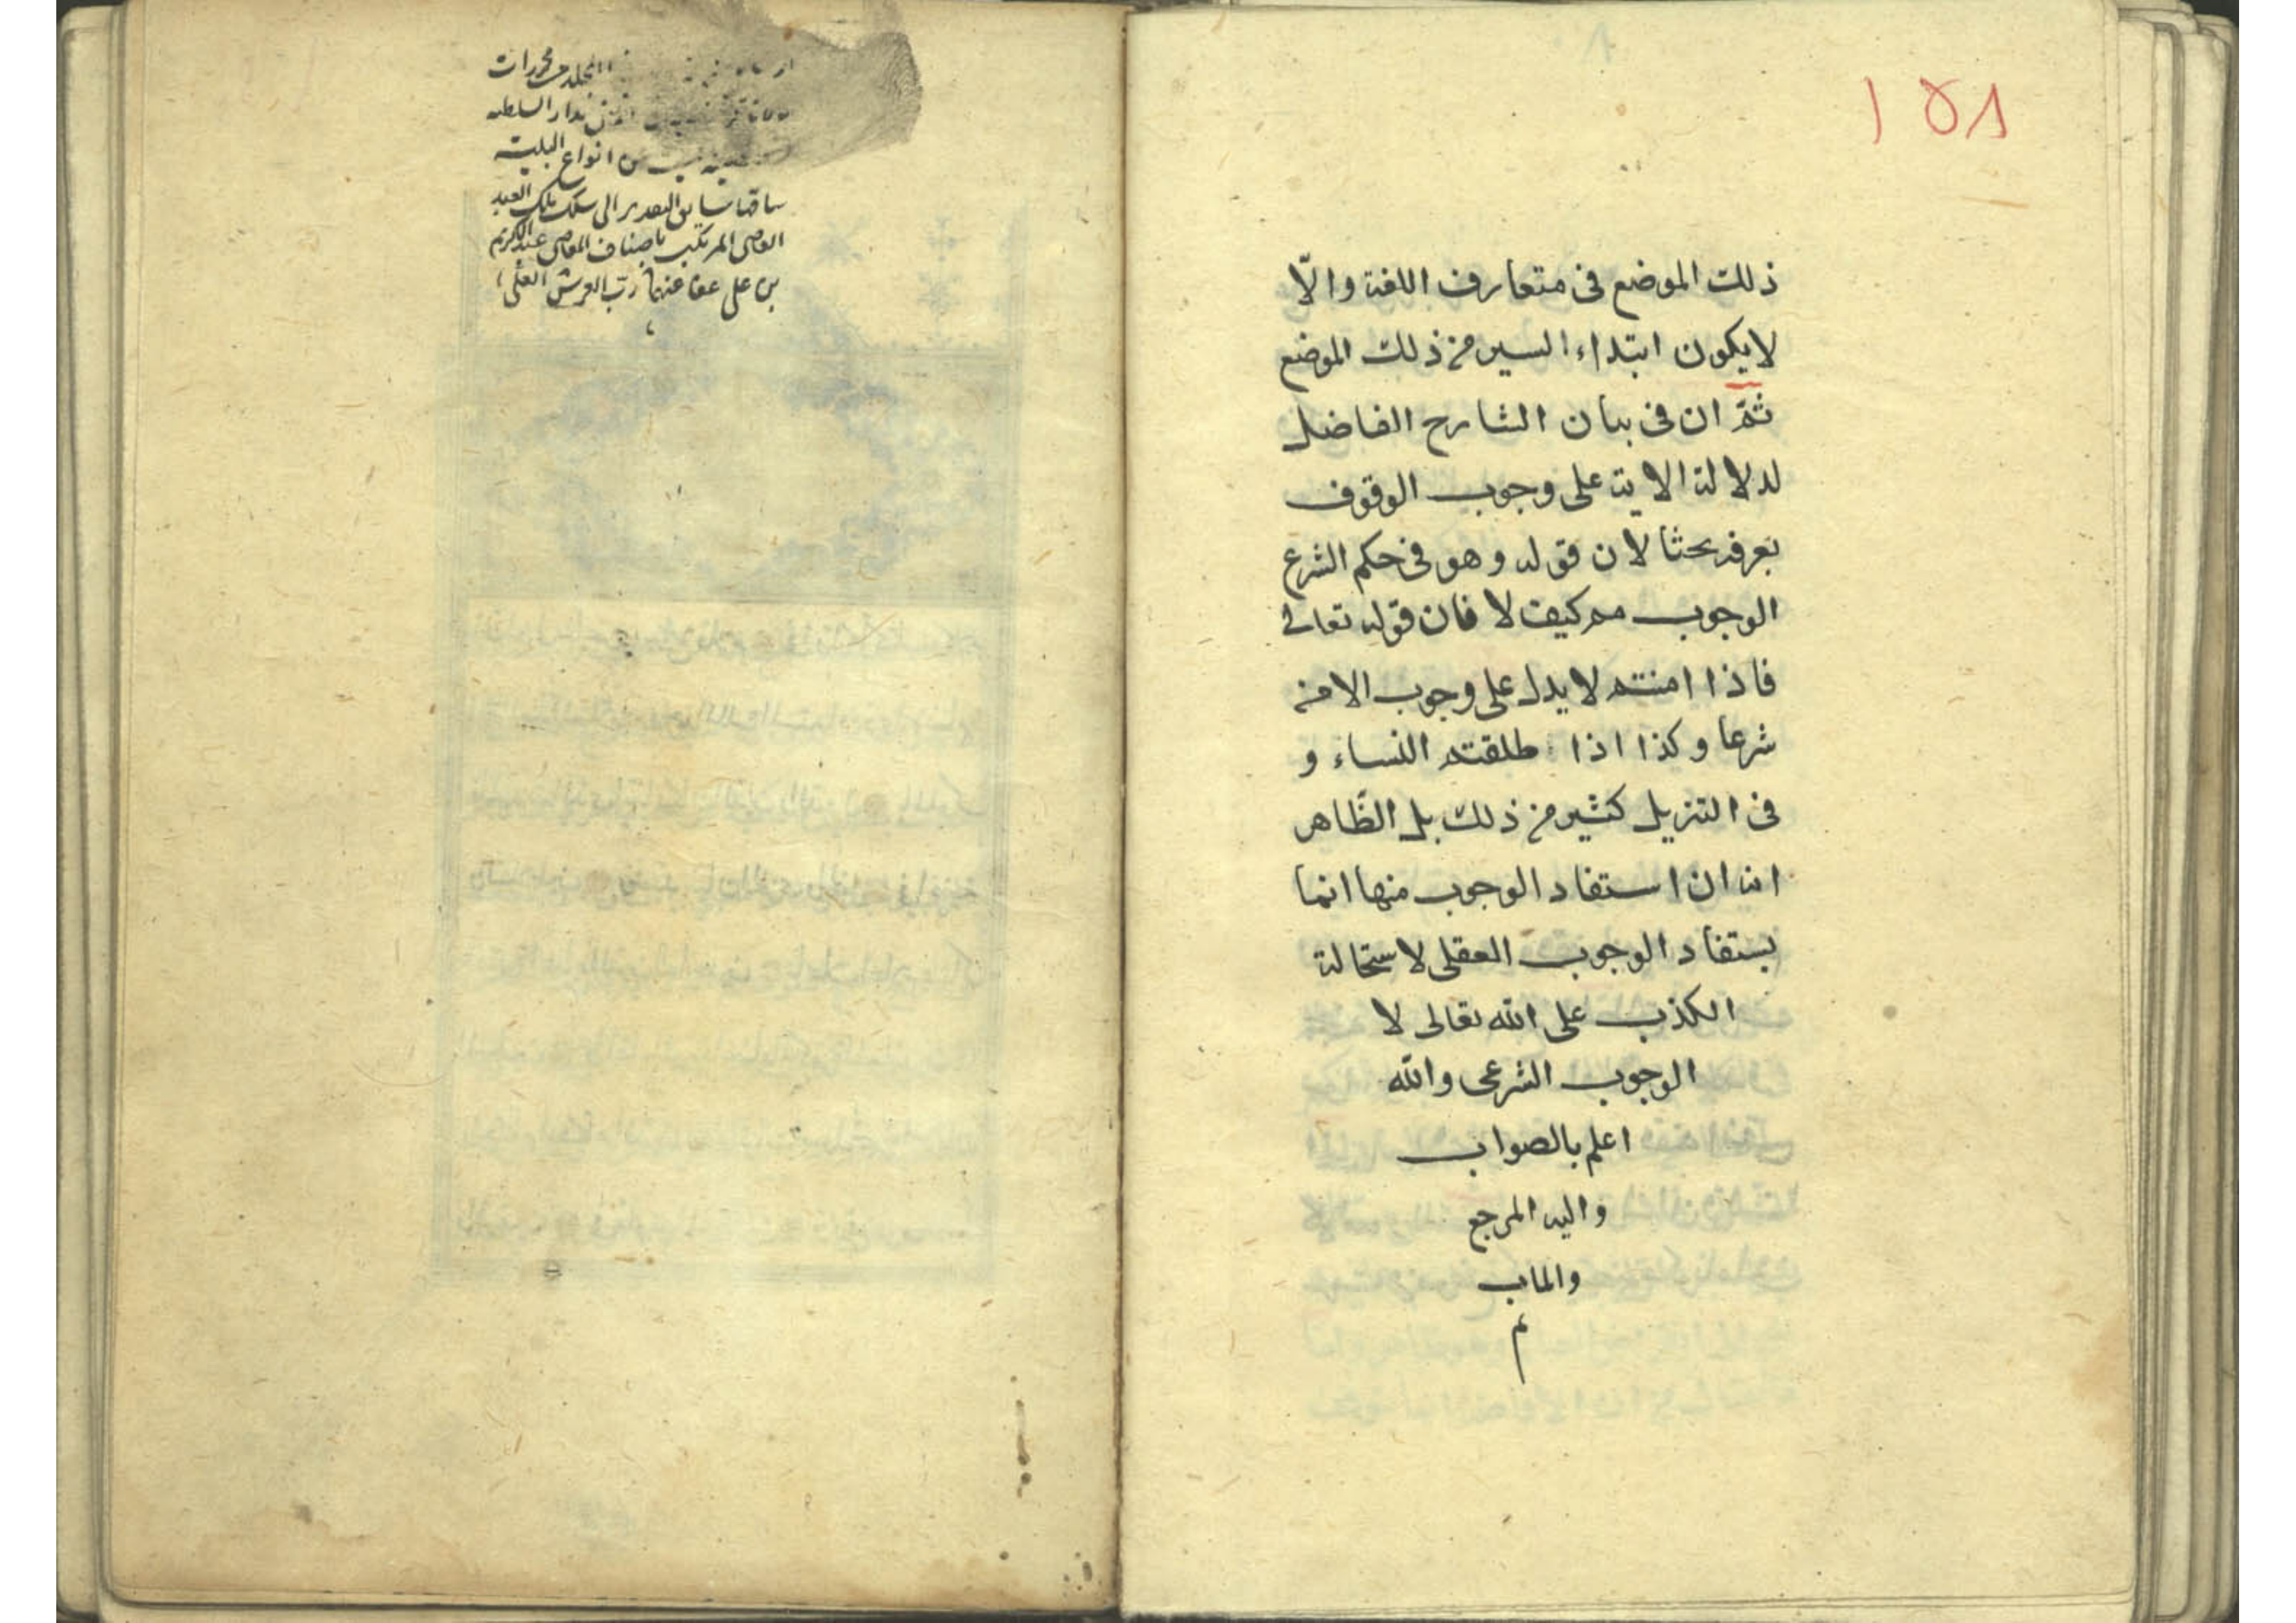 ١٥٨
ذلك الموضع فى متعارف اللغة والّا
لايكون ابتداء السير من ذلك الموضع
ثمّ ان فى بيان الشارح الفاضل
لدلالة الاية على وجوب الوقوف
بعرفة بحثا لان قوله وهو فى حكم الشرع
الوجوب مم كيف لا فان قوله تعالى
فاذا امنتم لا يدل على وجوب الامن
شرعا وكذا اذا طلقتم النساء و
فى التنزيل كثير من ذلك بل الظّاهر
انه ان استفاد الوجوب منها انما
يستفاد الوجوب العقلى لاستحالة
الكذب على الله تعالى لا
الوجوب الشرعى والله
اعلم بالصواب
واليه المرجع
والماب
تم
المجلد محررات
بدار السلطنه
من انواع البليه
ساقها سايق التقدير الى سلك ملك العبد
العاصى المرتكب باصناف المعاصى عبد الكريم
بن على عفا عنهما ربّ العرش العلى